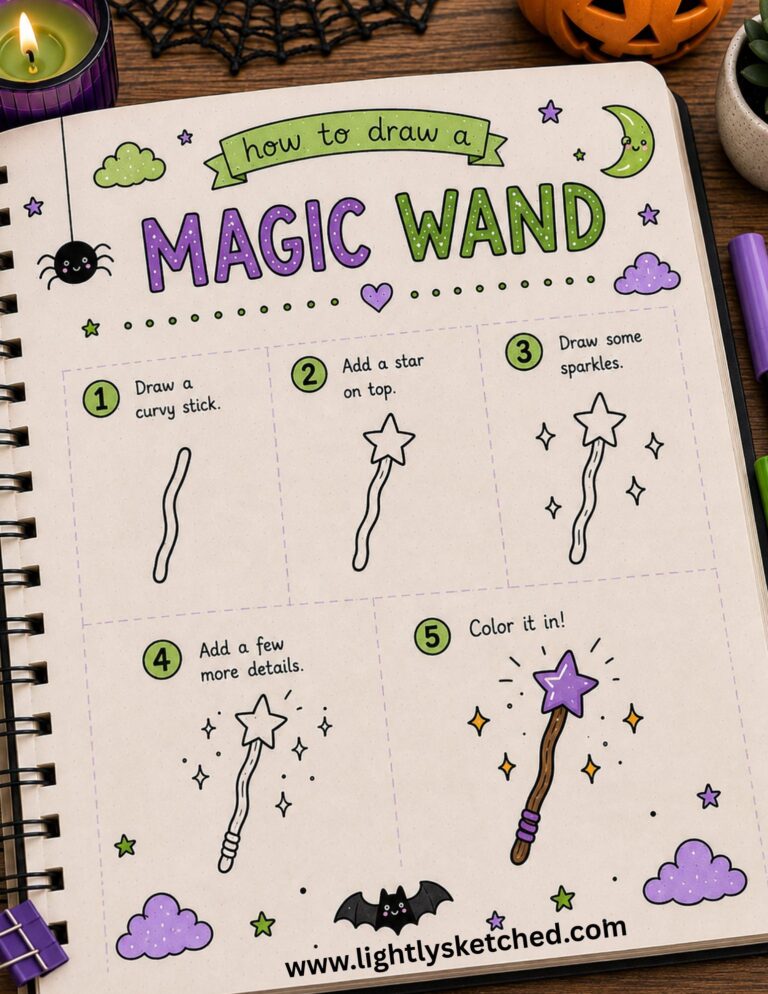 how to draw a
MAGIC WAND
1
Draw a
curvy stick.
2
Add a star
on top.
3
Draw some
sparkles.
4
Add a few
more details.
5
Color it in!
www.lightlysketched.com